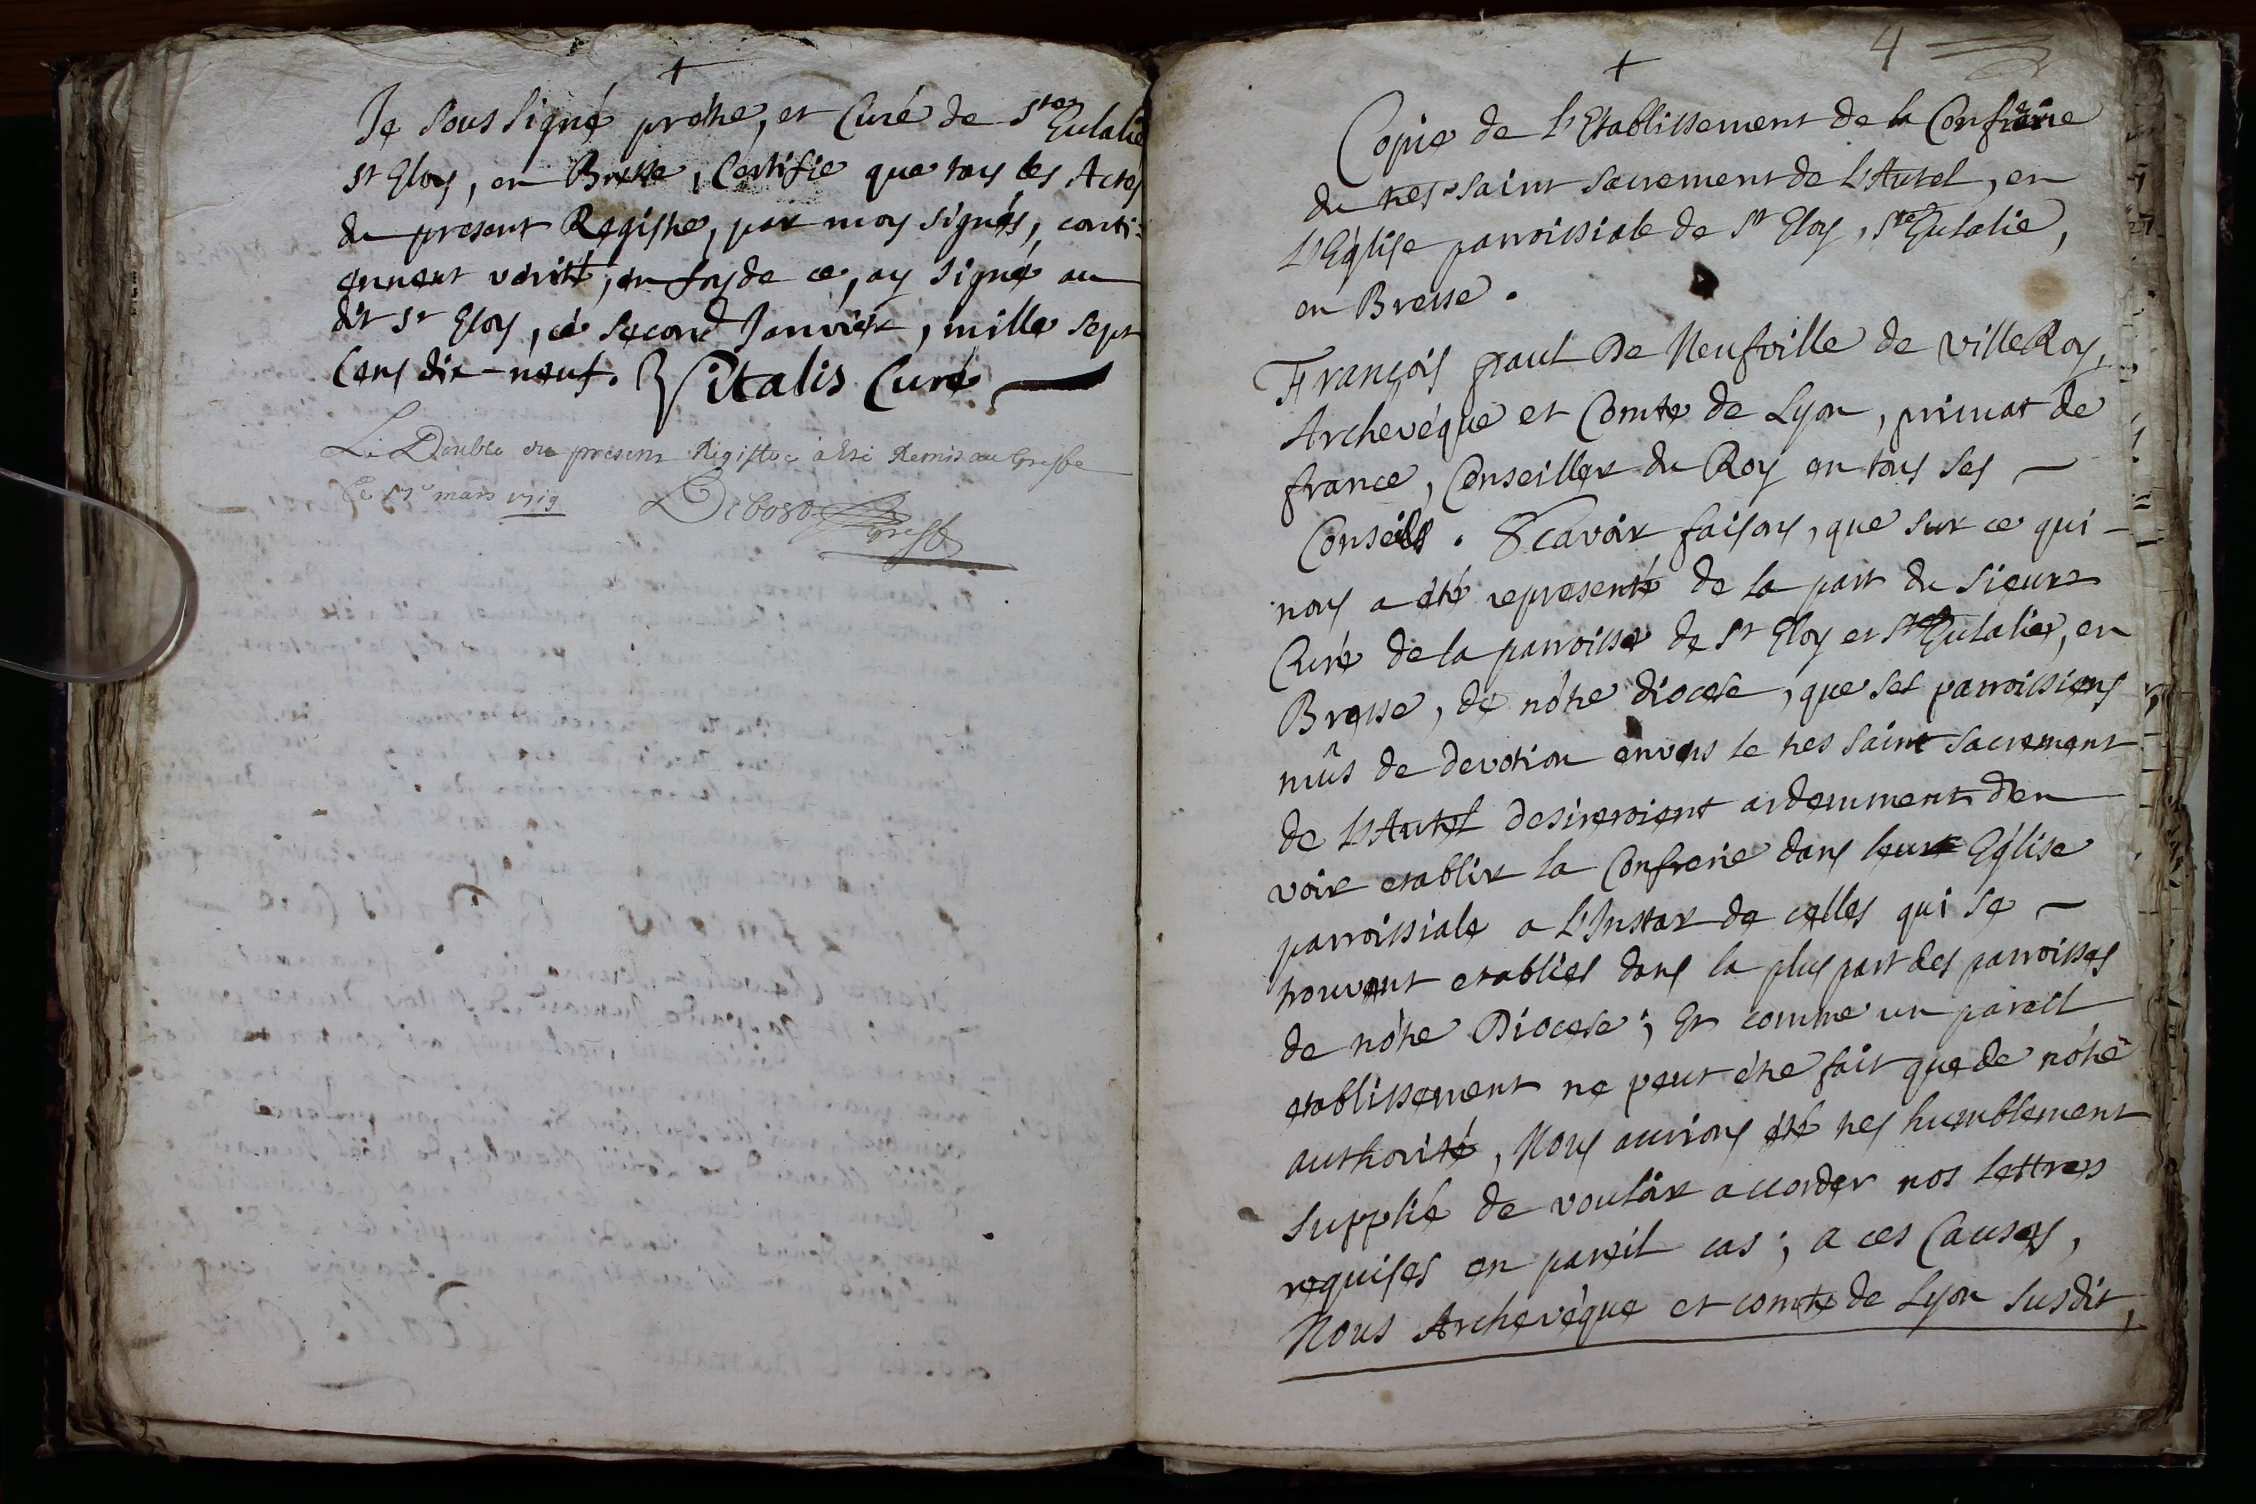 +
Je soussigné prêtre, et Curé de Ste Eulalie
St Eloy, en Bresse, Certifie que tous les Actes
du present Registre, par moy signés, conti-
ennent verité, en foy de ce, ay signé au
dit St Eloy, ce second Janvier, mille sept
Cens dix-neuf. Vitalis Curé
Le Double du present Registre a été Remis au Greffe
Le 17e mars 1719
4
+
Copie de L'Etablissement de la Confrérie
du tres saint Sacrement de L'Autel, en
L'Eglise parroissiale de St Eloy, Ste Eulalie,
en Bresse.
François paul De Neufville de ville Roy,
Archevêque et Comte de Lyon, primat de
france, Conseiller du Roy en tous ses
Conseils. Scavoir faisons, que sur ce qui
nous a été representé de la part du Sieur
Curé de la parroisse de St Eloy et Ste Eulalie, en
Bresse, de nôtre diocese, que ses parroissiens
mûs de devotion envers le tres saint Sacrement
de L'Autel desireroient ardemment d'en
voir etablir la Confrerie dans leur Eglise
parroissiale a L'Instar de celles qui se
trouvent etablies dans la plus part des parroisses
de nôtre Diocese; Et comme un pareil
etablissement ne peut être fait que de nôtre
authorité, Nous aurions été tres humblement
supplié de vouloir accorder nos lettres
requises en pareil cas; a ces Causes,
Nous Archevêque et comte de Lyon susdit,